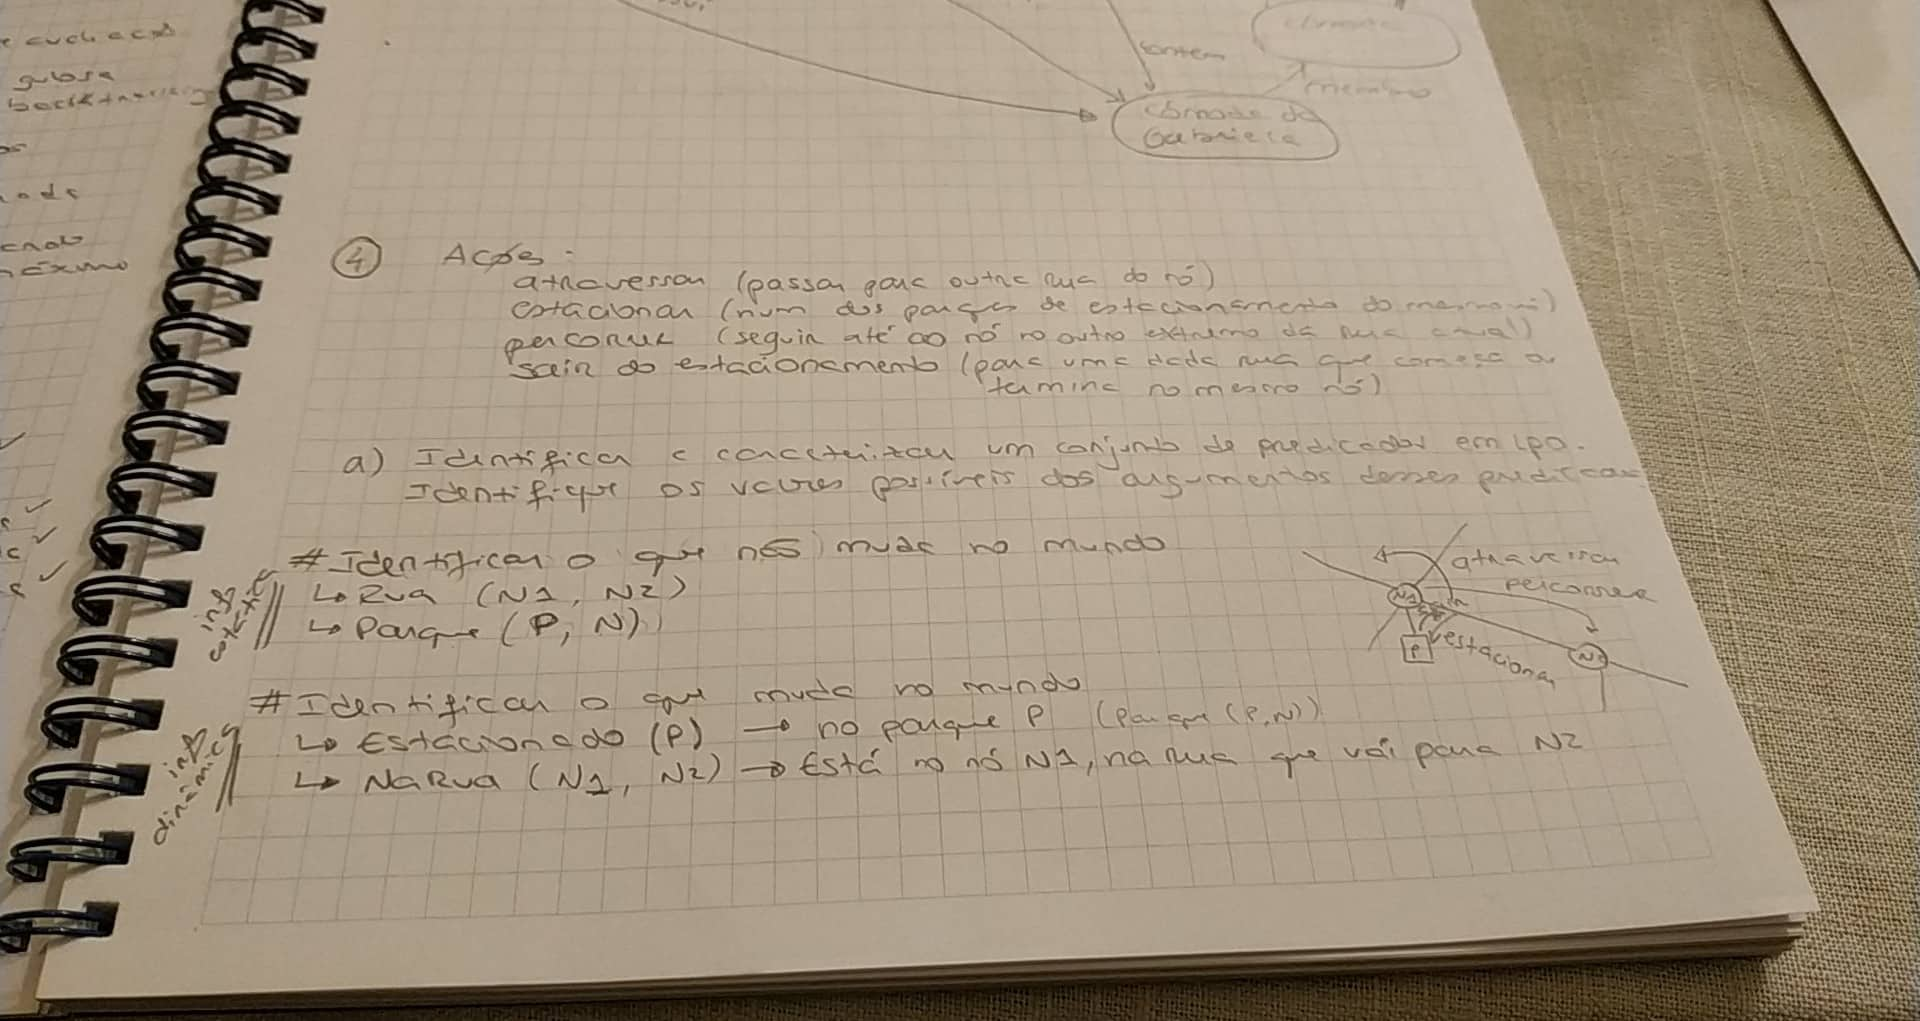 gulosa
contém
membro
cómoda da
Gabriela
4 Ações:
atravessar (passar para outra rua do nó)
estacionar (num dos parques de estacionamento do mesmo nó)
percorrer (seguir até ao nó no outro extremo da rua atual)
sair do estacionamento (para uma dada rua que começa ou
termina no mesmo nó)
a) Identificar e caracterizar um conjunto de predicados em LPO.
Identifique os valores possíveis dos argumentos desses
# Identificar o que não muda no mundo
↳ Rua (N1, N2)
↳ Parque (P, N)
info estática
atravessar
percorrer
N1
P
estacionar
# Identificar o que muda no mundo
↳ Estacionado (P) → no parque P (Parque (P,N))
↳ NaRua (N1, N2) → Está no nó N1, na rua que vai para N2
info dinâmica